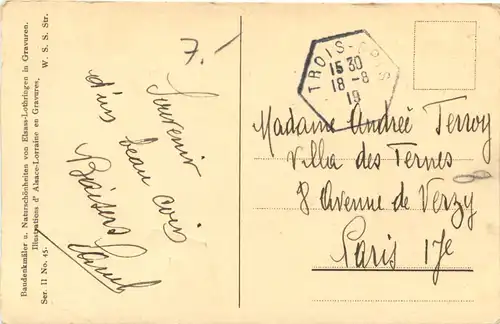 Baudenkmäler u. Naturschönheiten von Elsass-Lothringen in Gravuren.
Illustrations d' Alsace-Lorraine en Gravures.
Ser. II No. 45.
W. S. S. Str.
7.
Souvenir
d'un
beau coin
Baisers
TROIS-EPIS
15 30
18-8
19
Madame Andrée Terroy
Villa des Ternes
8 Avenue de Verzy
Paris 17e
8